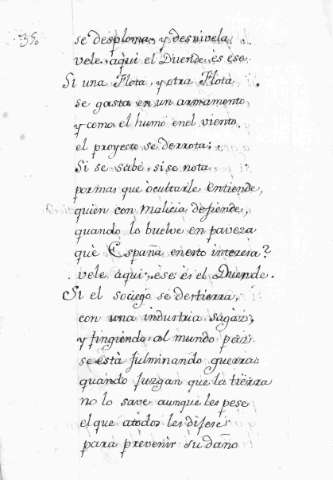 38
se desploma, y desnivela
vele, aqui el Duende es ese.
Si una Flota, y otra Flota
se gasta en un armamento
y como el humo enel viento
el proyecto se derrota;
si se sabe, si se nota
por mas que ocultarle entiende,
quien con malicia defiende,
quando lo buelve en paveza
què España en esto interesa?
vele aqui, ese es el Duende.
Si el sociego se destierra,
con una industria sagàz,
y fingiendo al mundo paz
se està fulminando guerra:
quando juzgan que la tierra
no lo save aunque les pese
el que atodos les dijese
para prevenir su daño